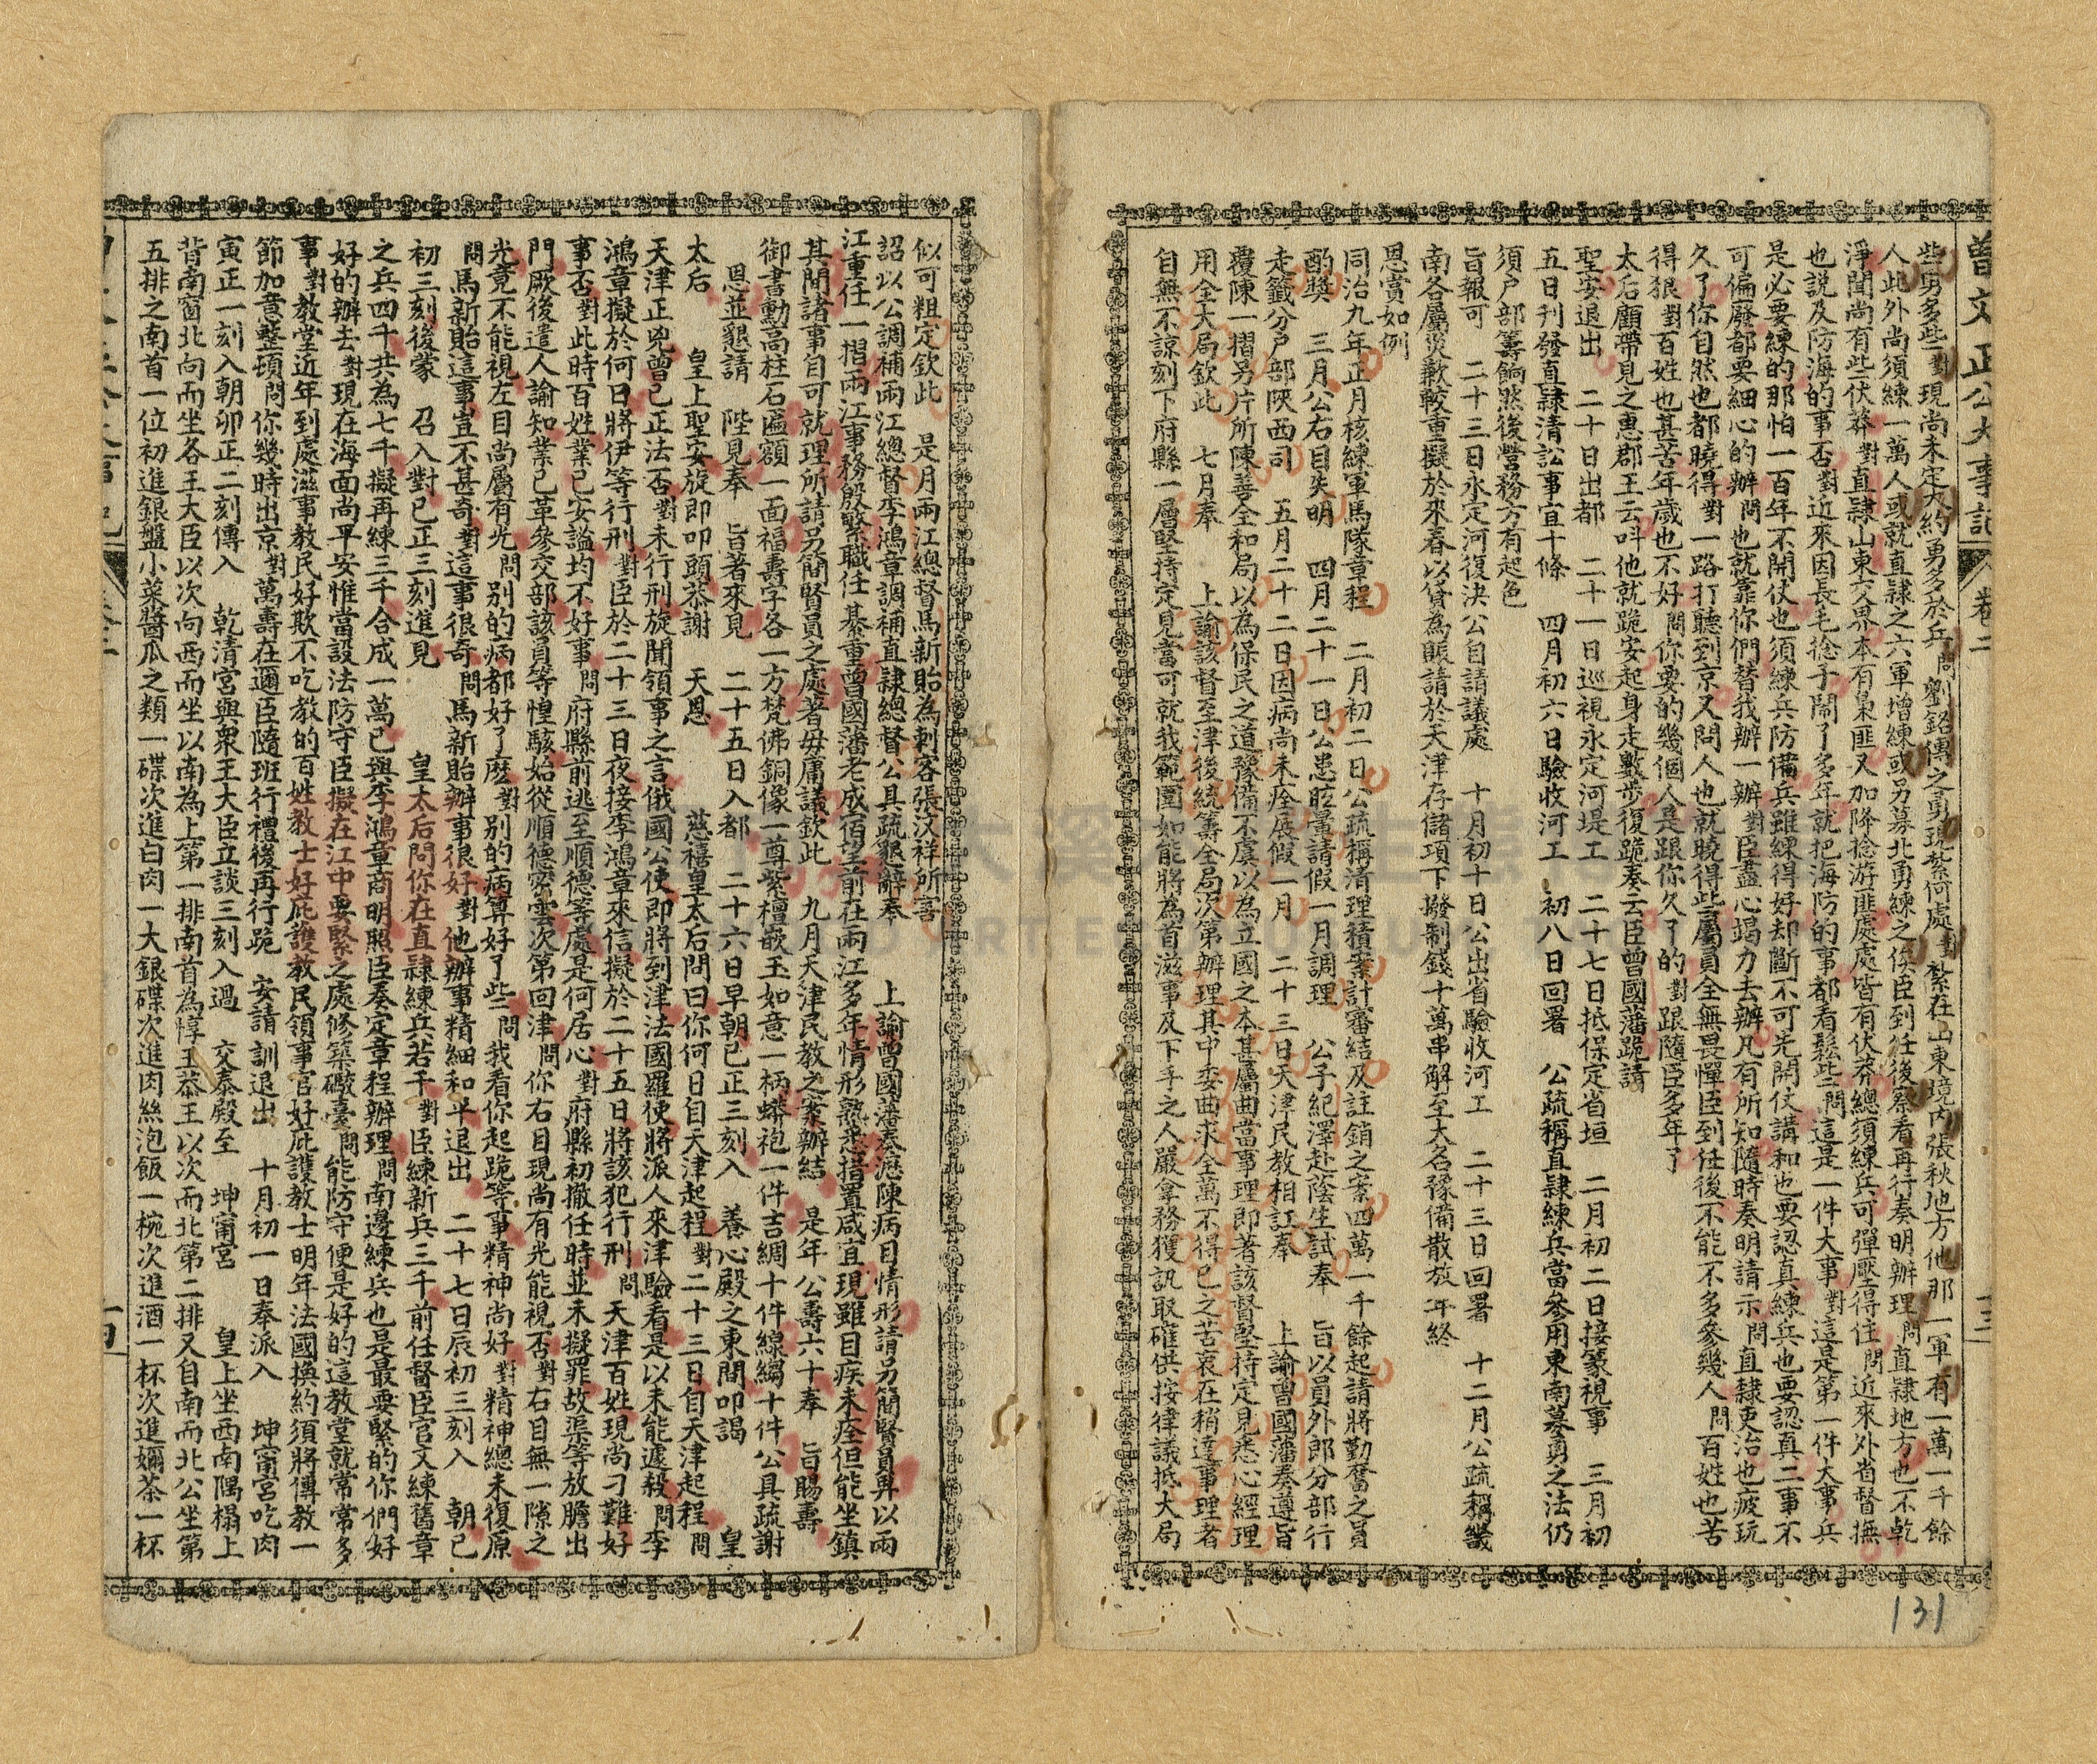 曾文正公大事記 卷二 十三
些勇多些對現尚未定大約勇多於兵問劉銘傳之勇現紮何處對紮在山東境內張秋地方他那一軍有一萬一千餘
人此外尚須練一萬人或就直隸之六軍增練或另募北勇練之俟臣到任後察看再行奏明辦理問直隸地方也不乾
淨聞尚有些伏莽對直隸山東交界本有梟匪又加降捻游匪處處皆有伏莽總須練兵可彈壓得住問近來外省督撫
也說及防海的事否對近來因長毛捻子鬧了多年就把海防的事都看鬆些問這是一件大事對這是第一件大事兵
是必要練的那怕一百年不開仗也須練兵防備兵雖練得好却斷不可先開仗講和也要認真練兵也要認真二事不
可偏廢都要細心的辦問也就靠你們替我辦一辦對臣盡心竭力去辦凡有所知隨時奏明請示問直隸吏治也疲玩
久了你自然也都曉得對一路打聽到京又問人也就曉得些屬員全無畏憚臣到任後不能不多參幾人問百姓也苦
得狠對百姓也甚苦年歲也不好問你要的幾個人是跟你久了的對跟隨臣多年了
太后顧帶見之惠郡王云叫他就跪安起身走數步復跪奏云臣曾國藩跪請
聖安退出 二十日出都 二十一日巡視永定河堤工 二十七日抵保定省垣 二月初二日接篆視事 三月初
五日刊發直隸清訟事宜十條 四月初六日驗收河工 初八日回署 公疏稱直隸練兵當參用東南募勇之法仍
須戶部籌餉然後營務方有起色
旨報可 二十三日永定河復決公自請議處 十月初十日公出省驗收河工 二十三日回署 十二月公疏稱畿
南各屬災歉較重擬於來春以貸為賑請於天津存儲項下撥制錢十萬串解至大名豫備散放 年終
恩賞如例
同治九年正月核練軍馬隊章程 二月初二日公疏稱清理積案計審結及註銷之案四萬一千餘起請將勤奮之員
酌獎 三月公右目失明 四月二十一日公患眩暈請假一月調理 公子紀澤赴蔭生試奉 旨以員外郎分部行
走籤分戶部陝西司 五月二十二日因病尚未痊展假一月 二十三日天津民教相訌奉 上諭曾國藩奏遵旨
覆陳一摺另片所陳善全和局以為保民之道豫備不虞以為立國之本甚屬曲當事理即著該督堅持定見悉心經理
用全大局欽此 七月奉 上諭該督至津後統籌全局次第辦理其中委曲求全萬不得已之苦衷在稍達事理者
自無不諒刻下府縣一層堅持定見當可就我範圍如能將為首滋事及下手之人嚴拿務獲訊取確供按律議抵大局
似可粗定欽此 是月兩江總督馬新貽為刺客張汶祥所害
詔以公調補兩江總督李鴻章調補直隸總督公具疏懇辭奉 上諭曾國藩奏瀝陳病目情形請另簡賢員畀以兩
江重任一摺兩江事務殷繁職任綦重曾國藩老成宿望前在兩江多年情形熟悉措置咸宜現雖目疾未痊但能坐鎮
其間諸事自可就理所請另簡賢員之處著毋庸議欽此 九月天津民教之案辦結 是年公壽六十奉 旨賜壽
御書勳高柱石匾額一面福壽字各一方梵佛銅像一尊紫檀嵌玉如意一柄蟒袍一件吉綢十件線縐十件公具疏謝
恩並懇請 陛見奉 旨著來見 二十五日入都 二十六日早朝已正三刻入 養心殿之東間叩謁 皇
太后 皇上聖安旋即叩頭恭謝 天恩 慈禧皇太后問曰你何日自天津起程對二十三日自天津起程問
天津正兇曾已正法否對未行刑旋聞領事之言俄國公使即將到津法國羅使將派人來津驗看是以未能遽殺問李
鴻章擬於何日將伊等行刑對臣於二十三日夜接李鴻章來信擬於二十五日將該犯行刑問天津百姓現尚刁難好
事否對此時百姓業已安謐均不好事問府縣前逃至順德等處是何居心對府縣初撤任時並未擬罪故渠等放膽出
門厥後遣人諭知業已革參交部該員等惶駭始從順德密雲次第回津問你右目現尚有光能視否對右目無一隙之
光竟不能視左目尚屬有光問別的病都好了麼對別的病算好了些問我看你起跪等事精神尚好對精神總未復原
問馬新貽這事豈不甚奇對這事很奇問馬新貽辦事很好對他辦事精細和平退出 二十七日辰初三刻入 朝已
初三刻後蒙 召入對已正三刻進見 皇太后問你在直隸練兵若干對臣練新兵三千前任督臣官文練舊章
之兵四千共為七千擬再練三千合成一萬已與李鴻章商明照臣奏定章程辦理問南邊練兵也是最要緊的你們好
好的辦去對現在海面尚平安惟當設法防守臣擬在江中要緊之處修築礮臺問能防守便是好的這教堂就常常多
事對教堂近年到處滋事教民好欺不吃教的百姓教士好庇護教民領事官好庇護教士明年法國換約須將傳教一
節加意整頓問你幾時出京對萬壽在邇臣隨班行禮後再行跪 安請訓退出 十月初一日奉派入 坤甯宮吃肉
寅正一刻入朝卯正二刻傳入 乾清宮與衆王大臣立談三刻入過 交泰殿至 坤甯宮 皇上坐西南隅榻上
背南窗北向而坐各王大臣以次向西而坐以南為上第一排南首為惇王恭王以次而北第二排又自南而北公坐第
五排之南首一位初進銀盤小菜醬瓜之類一碟次進白肉一大銀碟次進肉絲泡飯一椀次進酒一杯次進嬭茶一杯
131